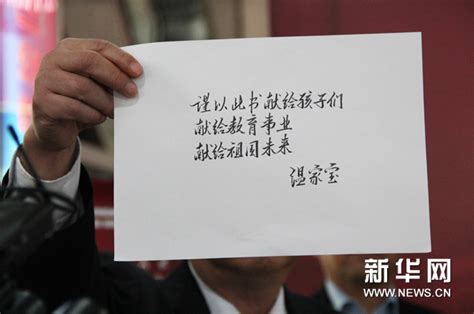 谨以此书献给孩子们
献给教育事业
献给祖国未来
温家宝
新华网
WWW.NEWS.CN